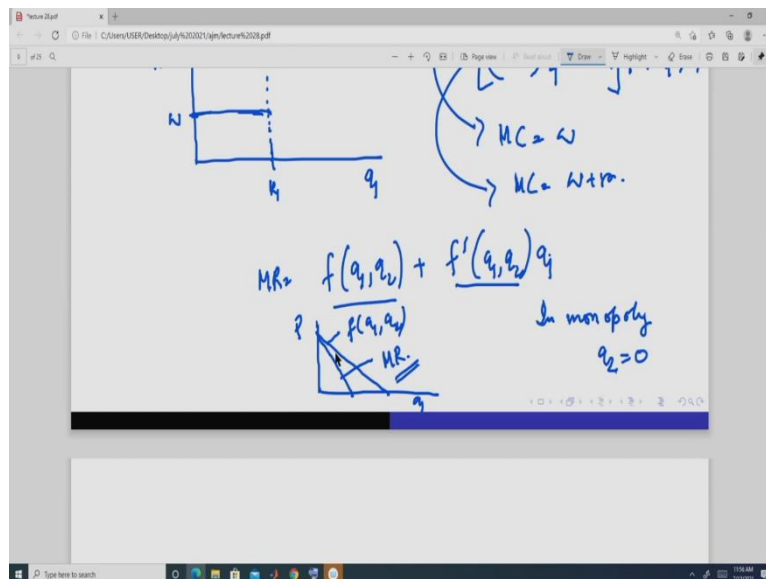 lecture 28.pdf
File | C:/Users/USER/Desktop/july%202021/ajm/lecture%2028.pdf
of 25
Page view
Read aloud
Draw
Highlight
Erase
W
K₁
q₁
MC = W
MC = W + r.
MR = f(q₁, q₂) + f'(q₁, q₂) q₁
P
f(q₁, q₂)
MR.
q₁
In monopoly
q₂ = 0
Type here to search
11:56 AM